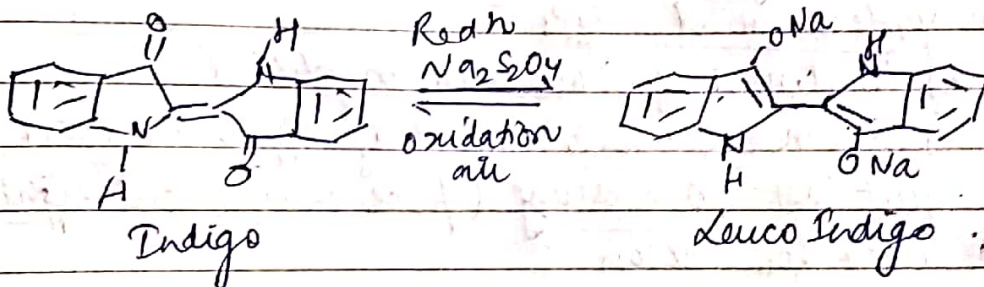 O
H
N
N
H
O
Redn
Na2S2O4
Oxidation
air
ONa
H
N
N
H
ONa
Indigo
Leuco Indigo.